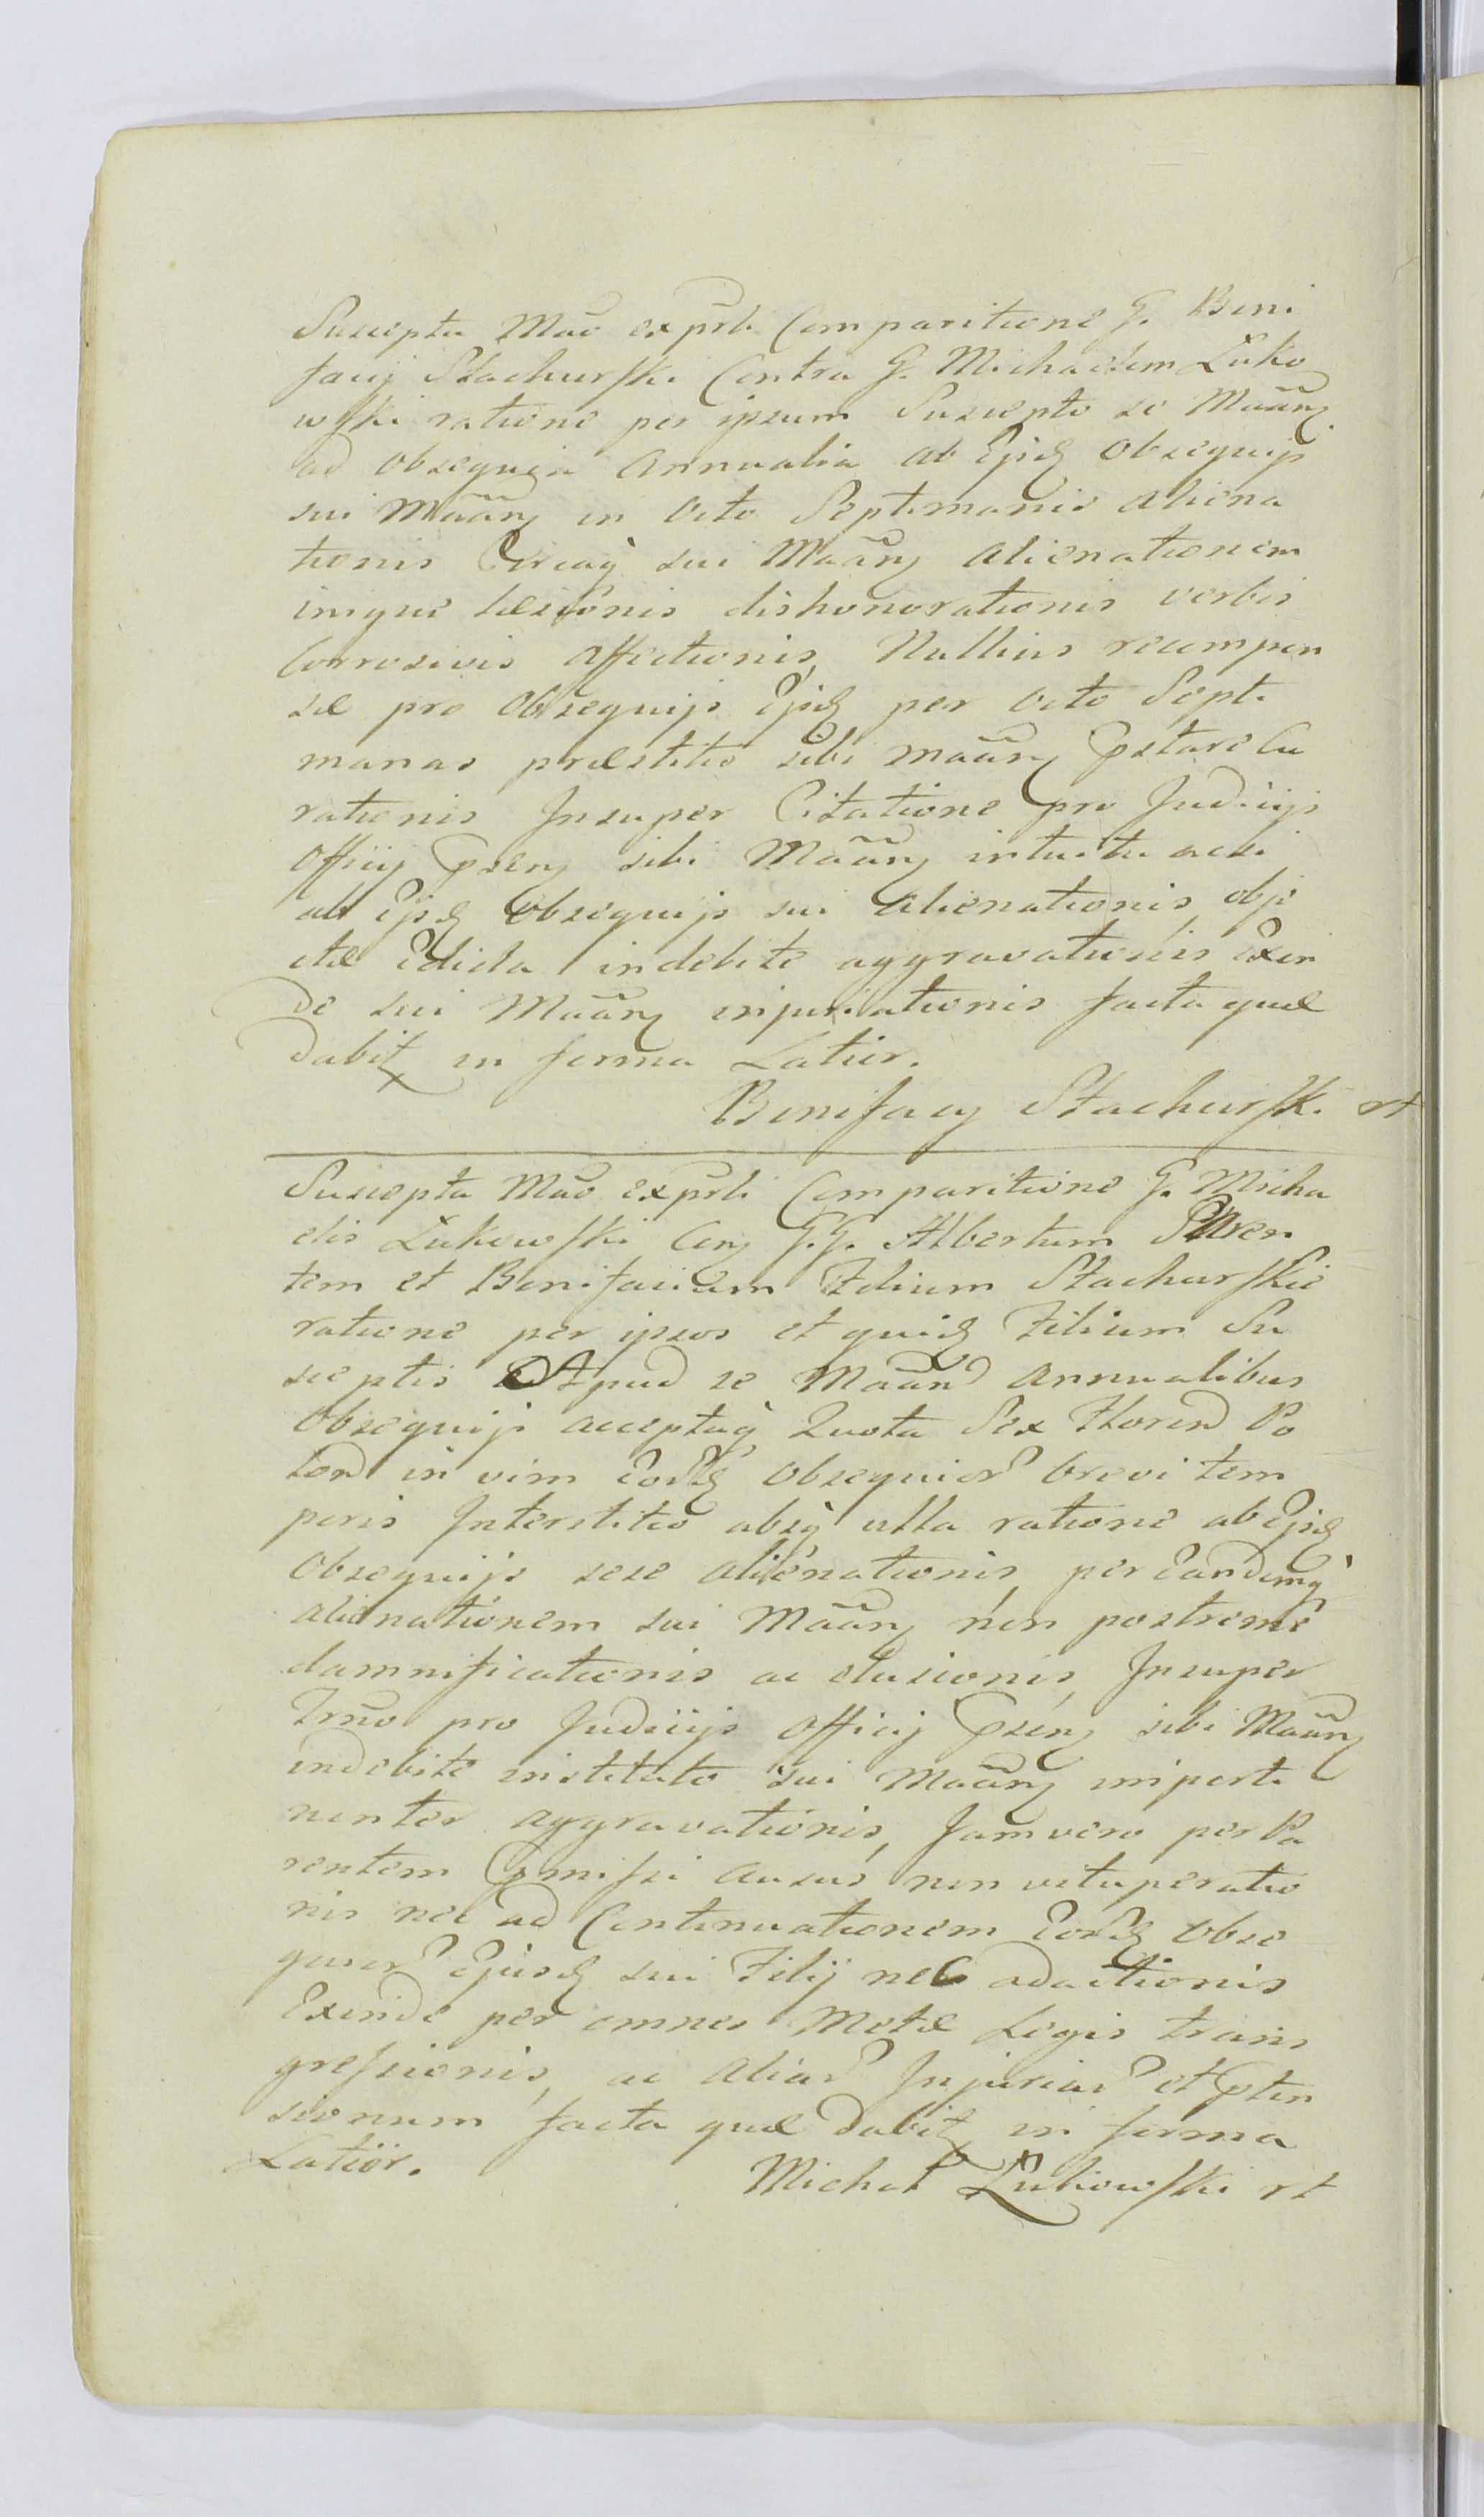 Suscepta Mão exprli Comparitione G. Boni
facij Stachurski Contra G. Michaelem Łuko
wski ratione per ipsum Suscepto se Mããny
ad obsequia Annualia ab Ejsd Obsequijs
sui Mããny in Octo Septimanis aliena
tionis Circaq sui Mããny alienationem
inique læsionis dishonorationis verbis
Corrosivis affectionis, Nullius recompen
sæ pro Obsequijs Ejsd per Octo Septi
manas præstitis sibi Mããny pstare Cu
rationis Insuper Citatione pro Judicijs
Officij psen sibi Mããny intuitu acsi
ab Ejsd Obsequijs sui alienationis, obje
ctæ Edicta indebite aggravationis Exin
de sui Mããny injuriationis facta quæ
dabit in forma Latior.
Bonifacy Stachurski
Suscepta Mão exprli Comparitione G. Micha
elis Łukowski Con G.G. Albertum Paren
tem et Bonifacium Filium Stachurskie
ratione per ipsos et quid Filium Su
sceptis Apud se Mããnd Annualibus
Obsequijs acceptaq Quota Sex Floren Po
lon in vim Eord Obsequior brevi tem
poris Interstitio absq ulla ratione ab Ejsd
Obsequijs sese alienationis, per Eandemq
alienationem sui Mããny non postreme
damnificationis ac elusionis, Insuper
Trno pro Judicijs Officij psen sibi Mããny
indebite instituto sui Mããny imperti
nenter aggravationis, Jam vero per Pa
rentem Comissi ausus non vituperatio
nis nec ad Continuationem Eord Obse
quior Ejusd sui Filij nec adactionis
Exinde per omnes Metæ Legis trans
gressionis, ac aliar Injuriar et pten
sionum facta quæ dabit in forma
Latior.
Michał Łukowski